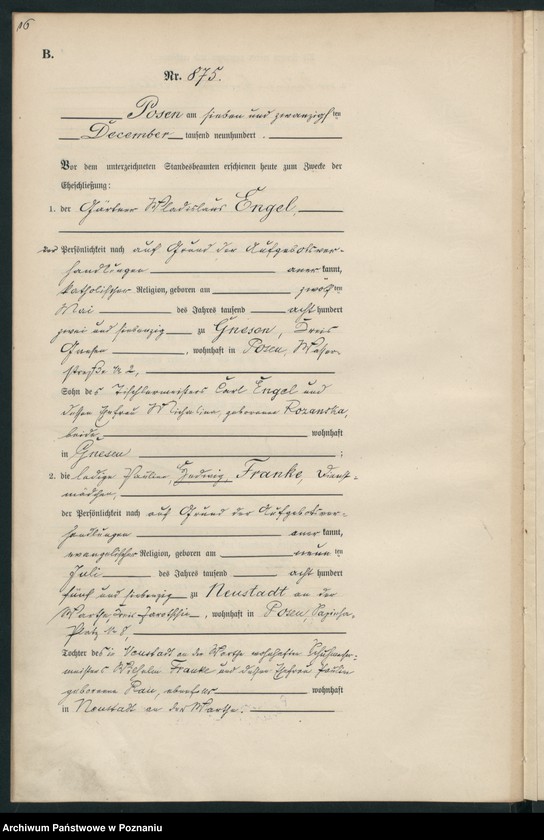 16
B.
Nr. 875.
Posen am sieben und zwanzigsten
December tausend neunhundert
Vor dem unterzeichneten Standesbeamten erschienen heute zum Zwecke der
Eheschließung:
1. der Gärtner Wladislaus Engel,
der Persönlichkeit nach auf Grund der Aufgebotsver-
handlungen anerkannt,
katholischer Religion, geboren am zwölften
Mai des Jahres tausend acht hundert
zwei und siebenzig zu Gnesen, Kreis
Gnesen, wohnhaft in Posen, Wasser-
straße № 2,
Sohn des Tischlermeisters Carl Engel und
dessen Ehefrau Michalina, geborenen Rozanska,
beide wohnhaft
in Gnesen ;
2. die ledige Pauline, Hedwig, Franke, Dienst-
mädchen,
der Persönlichkeit nach auf Grund der Aufgebotsver-
handlungen anerkannt,
evangelischer Religion, geboren am neunten
Juli des Jahres tausend acht hundert
fünf und siebenzig zu Neustadt an der
Warthe, Kreis, wohnhaft in Posen, Sapieha-
Platz № 8,
Tochter des in Neustadt an der Warthe wohnhaften Schuhmacher-
meisters Wilhelm Franke und dessen Ehefrau Pauline
geborene Rau, ebenfalls wohnhaft
in Neustadt an der Warthe.
Archiwum Państwowe w Poznaniu